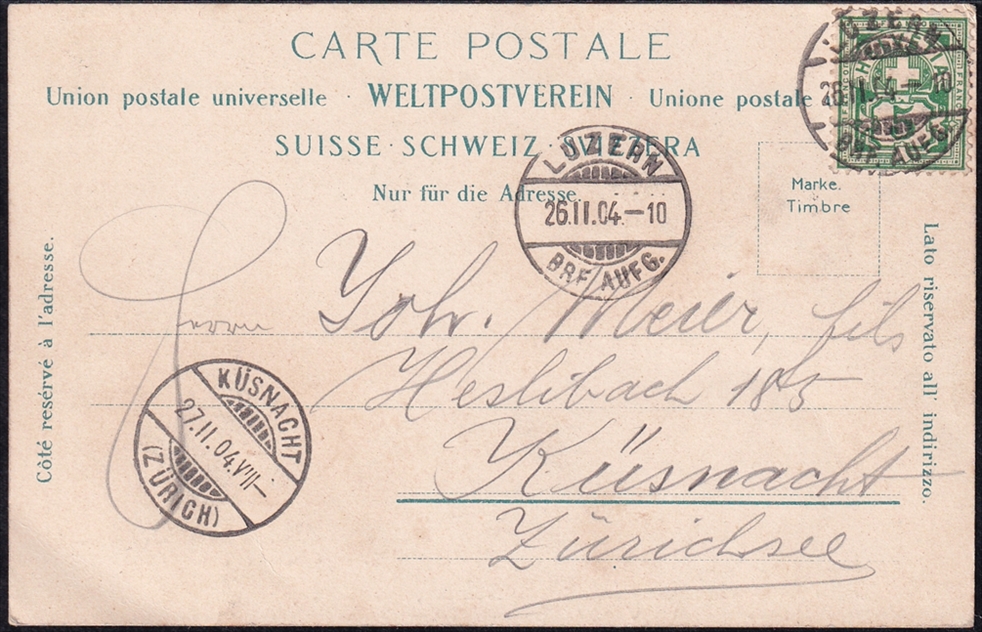 CARTE POSTALE
Union postale universelle · WELTPOSTVEREIN · Unione postale
SUISSE · SCHWEIZ · SVIZZERA
Nur für die Adresse.
LUZERN
26.II.04.–10
BRF. AUFG.
LUZERN
26.II.04.–10
BRF. AUFG.
HELVETIA
FRANCO
Marke.
Timbre
Côté resérvé à l'adresse.
Lato riservato all' indirizzo.
Herrn
Joh. Meier, fils
Heslibach 185
Küsnacht
Zürichsee
KÜSNACHT
27.II.04.VIII–
(ZÜRICH)